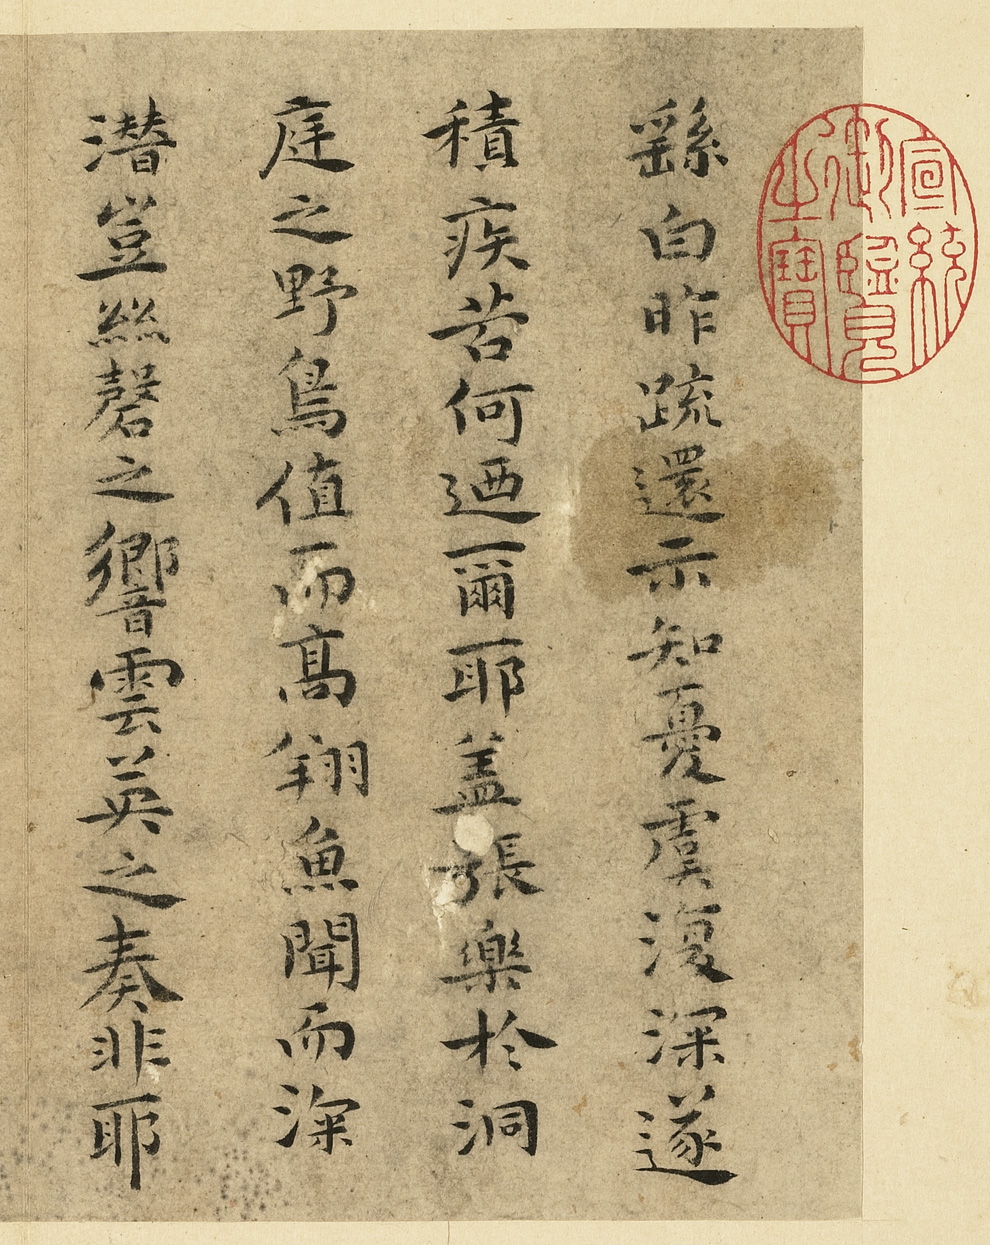 宣統
御覽
之寶
繇白昨疏還示知憂虞復深遂
積疾苦何迺爾耶盖張樂於洞
庭之野鳥值而高翔魚聞而深
潛豈絲磬之響雲英之奏非耶